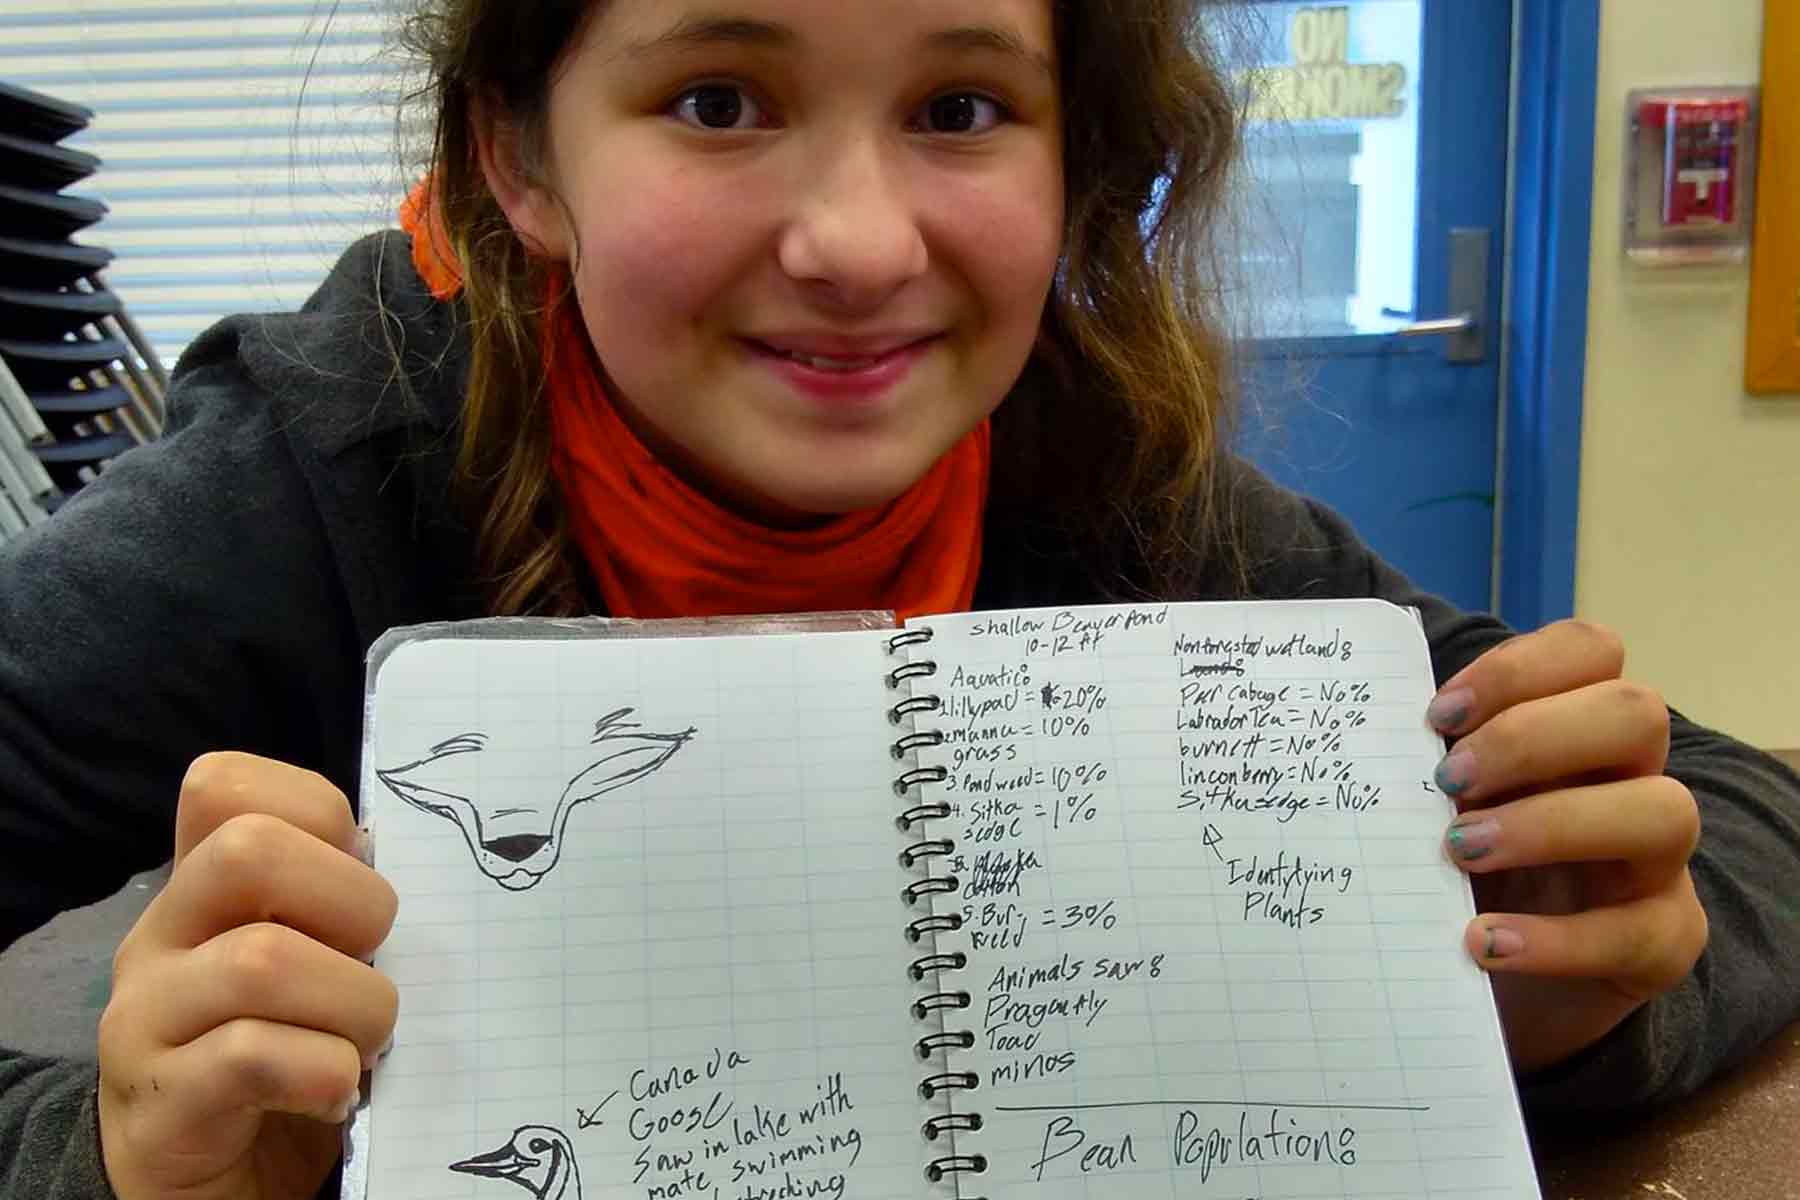 NO
SMOKING
Canada
Goose
Saw in lake with
mate, swimming
Shallow Beaver Pond
10-12 ft
Aquatic:
1. lillypad = 20%
2. manna = 10%
grass
3. Pond weed = 10%
4. Sitka = 1%
sedge
cotton
5. Bur- = 3%
reed
Animals saw:
Dragonfly
Toad
minos
Bean Population:
wetland:
Land:
cabage = No%
Labrador Tea = No%
burnett = No%
linconberry = No%
Sitka sedge = No%
Identifying
Plants